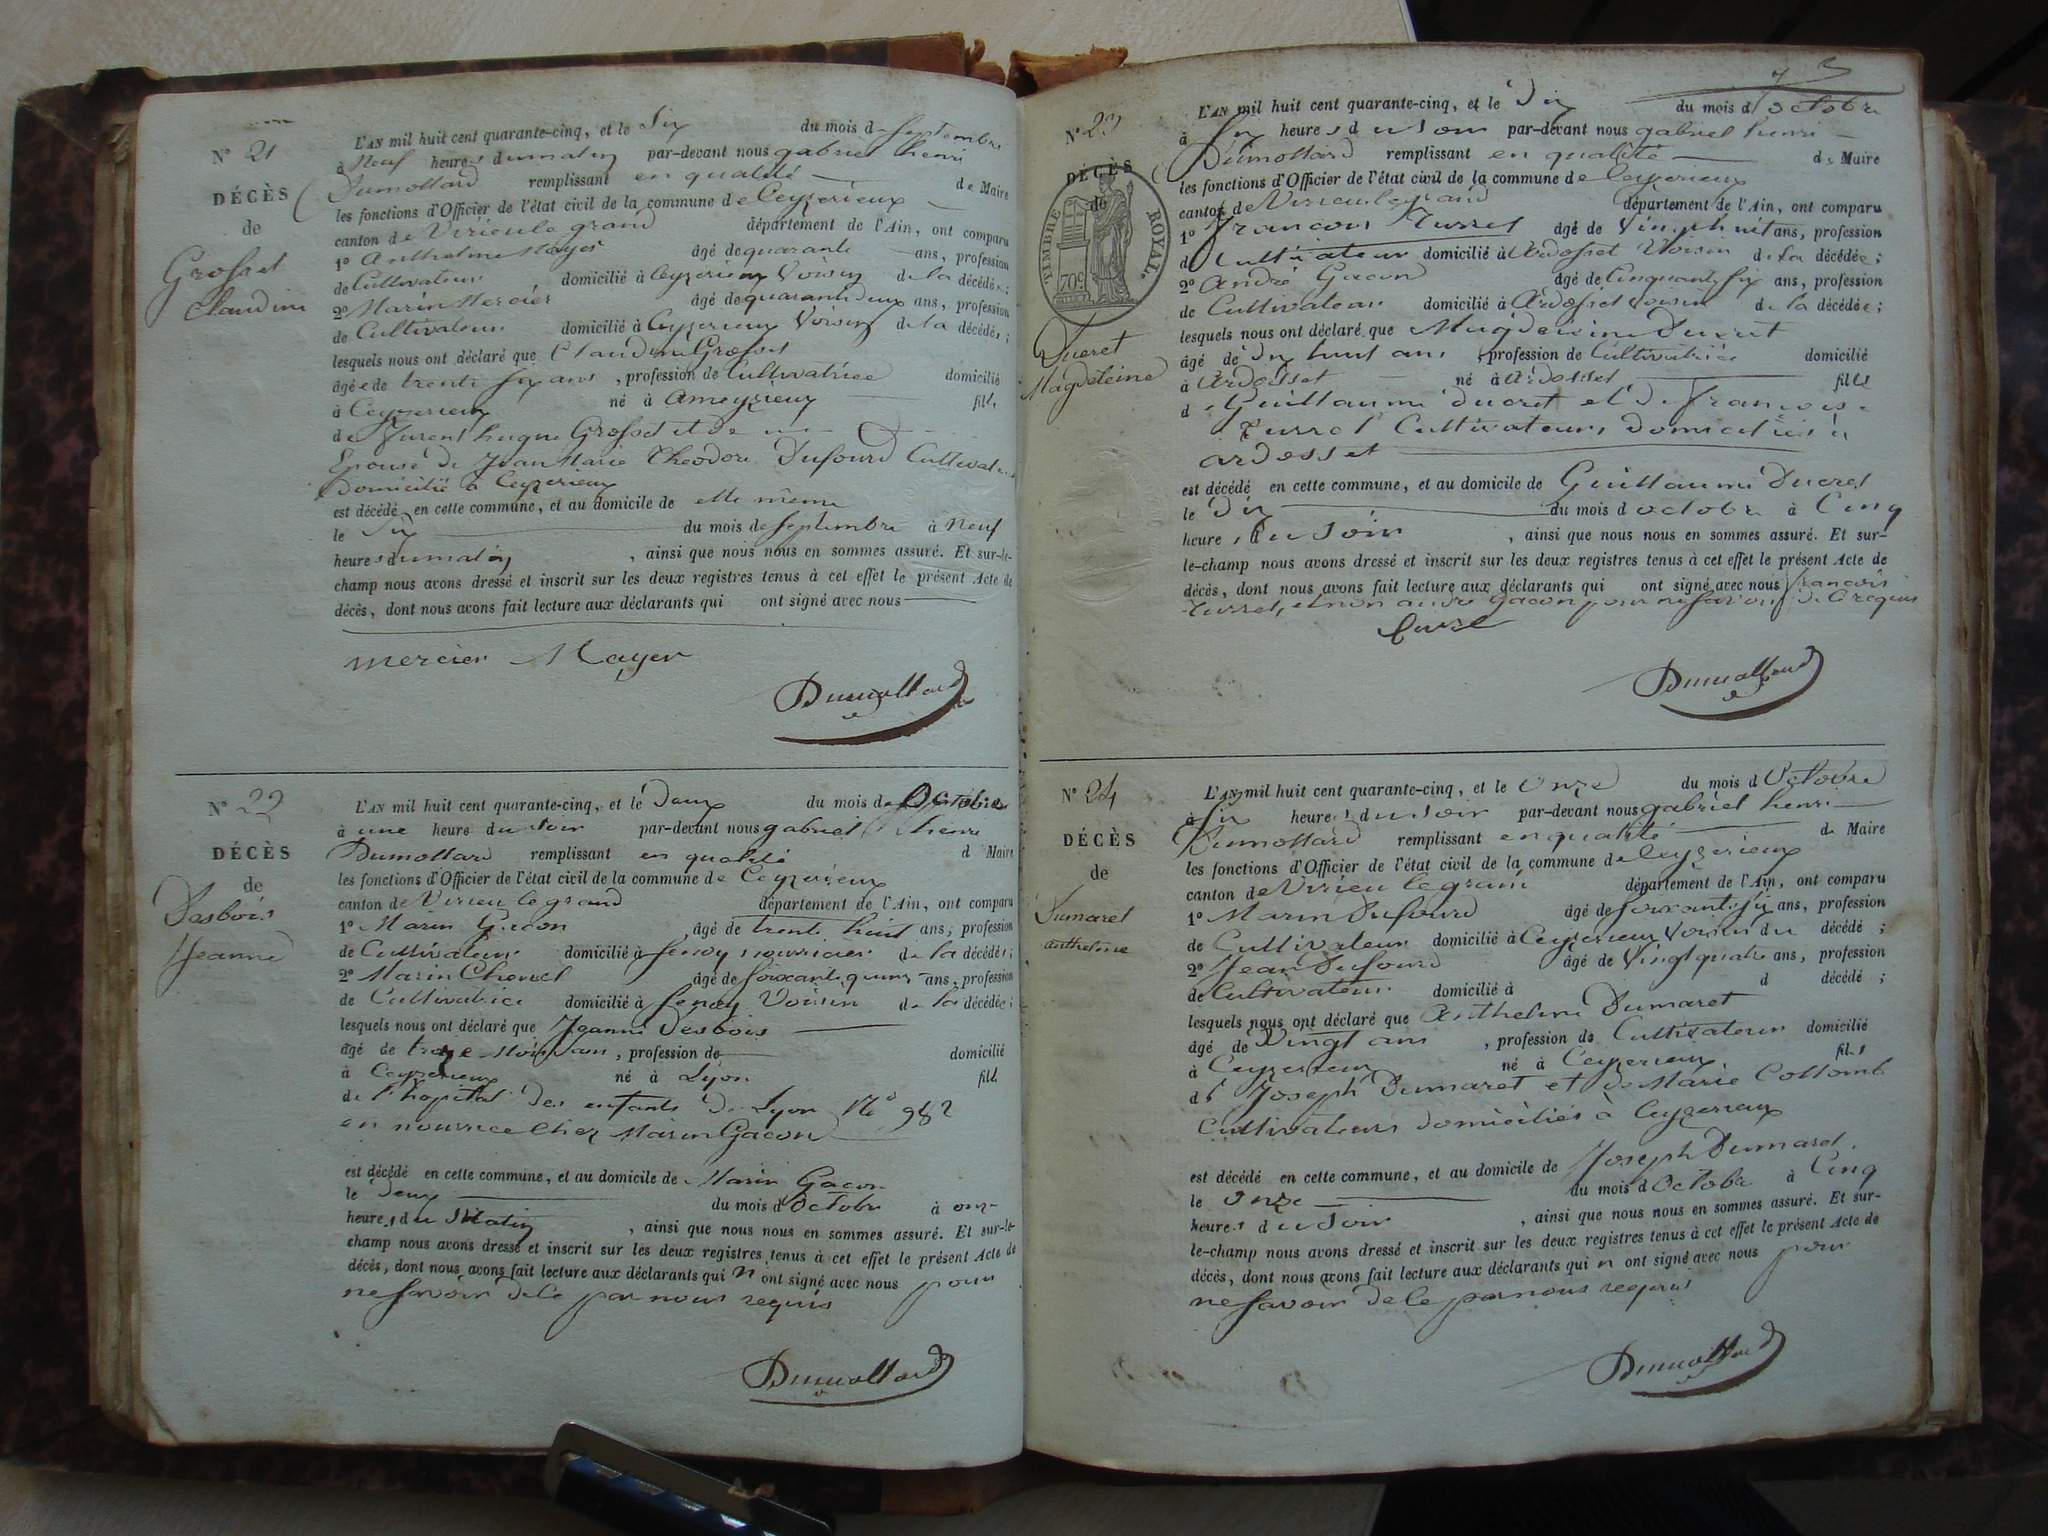 N° 21
DÉCÈS
de
Grosset
Claudine
L'AN mil huit cent quarante-cinq, et le Six du mois de Septembre
à Neuf heures du matin par-devant nous gabriel henri
Dumollard remplissant en qualité de Maire
les fonctions d'Officier de l'état civil de la commune de Ceyzerieux
canton de Virieu le grand département de l'Ain, ont comparu
1° Anthelme Mayer âgé de quarante ans, profession
de Cultivateur domicilié à Ceyzerieux Voisin de la décédée;
2° Marin Mercier âgé de quarante deux ans, profession
de Cultivateur domicilié à Ceyzerieux Voisin de la décédée;
lesquels nous ont déclaré que Claudine Grosset
âgée de trente six ans, profession de Cultivatrice domicilié
à Ceyzerieux né à Ameyzieux fille
de Grosset et de
Epouse de Jean Marie Théodore Dufourd Cultivateur
domicilié à Ceyzerieux
est décédé en cette commune, et au domicile de elle même
le Six du mois de Septembre à Neuf
heures du matin, ainsi que nous nous en sommes assuré. Et sur-le-
champ nous avons dressé et inscrit sur les deux registres tenus à cet effet le présent Acte de
décès, dont nous avons fait lecture aux déclarants qui ont signé avec nous
mercier Mayer
Dumollard
N° 22
DÉCÈS
de
Desbois
Jeanne
L'AN mil huit cent quarante-cinq, et le Deux du mois de Octobre
à une heure du soir par-devant nous gabriel henri
Dumollard remplissant en qualité d Maire
les fonctions d'Officier de l'état civil de la commune de Ceyzerieux
canton de Virieu le grand département de l'Ain, ont comparu
1° Marin Gacon, âgé de trente huit ans, profession
de Cultivateur domicilié à nourricier de la décédée;
2° Marin Chenel âgé de soixante quinze ans, profession
de Cultivatrice domicilié à Voisin de la décédée;
lesquels nous ont déclaré que Jeanne Desbois
âgé de treize Mois, profession de domicilié
à Ceyzerieux né à Lyon fille
de l'hopital des enfants de Lyon N° 982
en nourrice chez Marin Gacon
est décédé en cette commune, et au domicile de Marin Gacon
le deux du mois d'Octobre à onze
heures du Matin, ainsi que nous nous en sommes assuré. Et sur-le-
champ nous avons dressé et inscrit sur les deux registres tenus à cet effet le présent Acte de
décès, dont nous avons fait lecture aux déclarants qui n ont signé avec nous pour
ne savoir de ce par nous requis
Dumollard
N° 23
DÉCÈS
de
TIMBRE ROYAL
70c
Ducret
Magdeleine
L'AN mil huit cent quarante-cinq, et le Dix du mois d'octobre
à Six heures du soir par-devant nous gabriel henri
Dumollard remplissant en qualité de Maire
les fonctions d'Officier de l'état civil de la commune de Ceyzerieux
canton de Virieu le grand département de l'Ain, ont comparu
1° François Turrel âgé de Vingt huit ans, profession
de Cultivateur domicilié à Ardosset Voisin de la décédée;
2° André Gacon âgé de Cinquante six ans, profession
de Cultivateur domicilié à Ardosset Voisin de la décédée;
lesquels nous ont déclaré que Magdeleine Ducret
âgé de dix huit ans, profession de Cultivatrice domicilié
à Ardosset né à Ardosset fille
de Guillaume Ducret et de Françoise
Turrel Cultivateurs domiciliés à
ardosset
est décédé en cette commune, et au domicile de Guillaume Ducret
le Dix du mois d octobre à Cinq
heures du soir, ainsi que nous nous en sommes assuré. Et sur-
le-champ nous avons dressé et inscrit sur les deux registres tenus à cet effet le présent Acte de
décès, dont nous avons fait lecture aux déclarants qui ont signé avec nous françois
Turrel, et non andré gacon pour ne savoir de ce requis
Dumollard
N° 24
DÉCÈS
de
Dumaret
anthelme
L'AN mil huit cent quarante-cinq, et le Onze du mois d Octobre
à Six heures du soir par-devant nous gabriel henri
Dumollard remplissant en qualité de Maire
les fonctions d'Officier de l'état civil de la commune de Ceyzerieux
canton de Virieu le grand département de l'Ain, ont comparu
1° Marin Dufourd âgé de soixante six ans, profession
de Cultivateur domicilié à Ceyzerieux Voisin du décédé;
2° Jean Dufourd âgé de Vingt quatre ans, profession
de Cultivateur domicilié à d décédé;
lesquels nous ont déclaré que Anthelme Dumaret
âgé de Vingt ans, profession de Cultivateur domicilié
à Ceyzerieux né à Ceyzerieux fils
de Joseph Dumaret et de Marie Collomb
Cultivateurs domiciliés à Ceyzerieux
est décédé en cette commune, et au domicile de Joseph Dumaret
le onze du mois d Octobre à Cinq
heures du soir, ainsi que nous nous en sommes assuré. Et sur-
le-champ nous avons dressé et inscrit sur les deux registres tenus à cet effet le présent Acte de
décès, dont nous avons fait lecture aux déclarants qui n ont signé avec nous pour
ne savoir de ce par nous requis
Dumollard